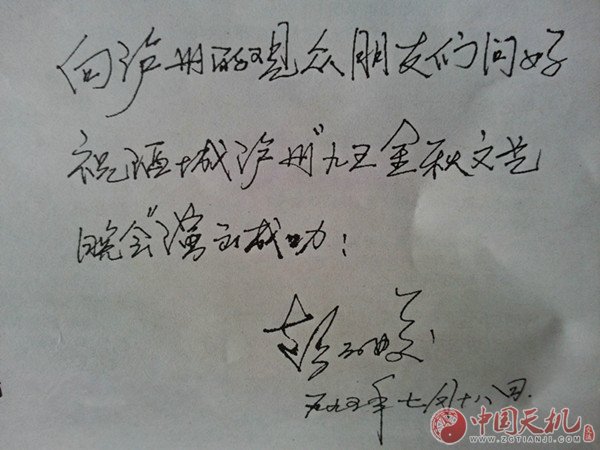 向泸州的观众朋友们问好
祝酒城泸州"九五金秋文艺
晚会"演出成功！
一九九五年七月十八日
中国天机
WWW.ZGTIANJI.COM